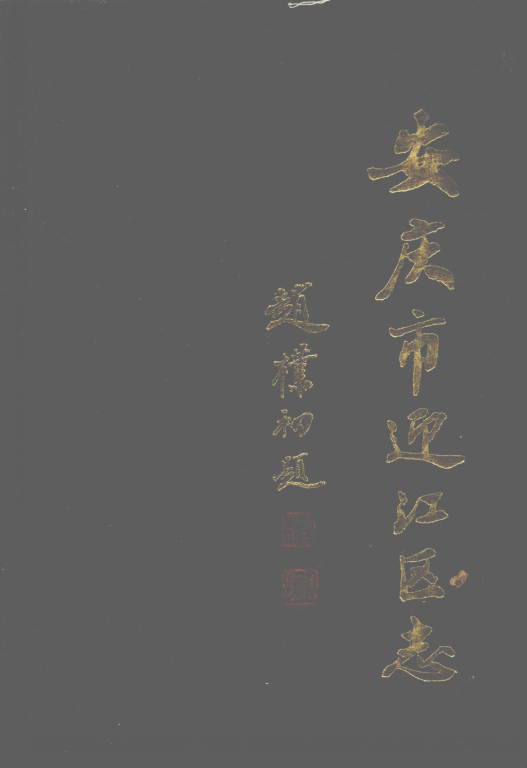 安庆市迎江区志
趙樸初題